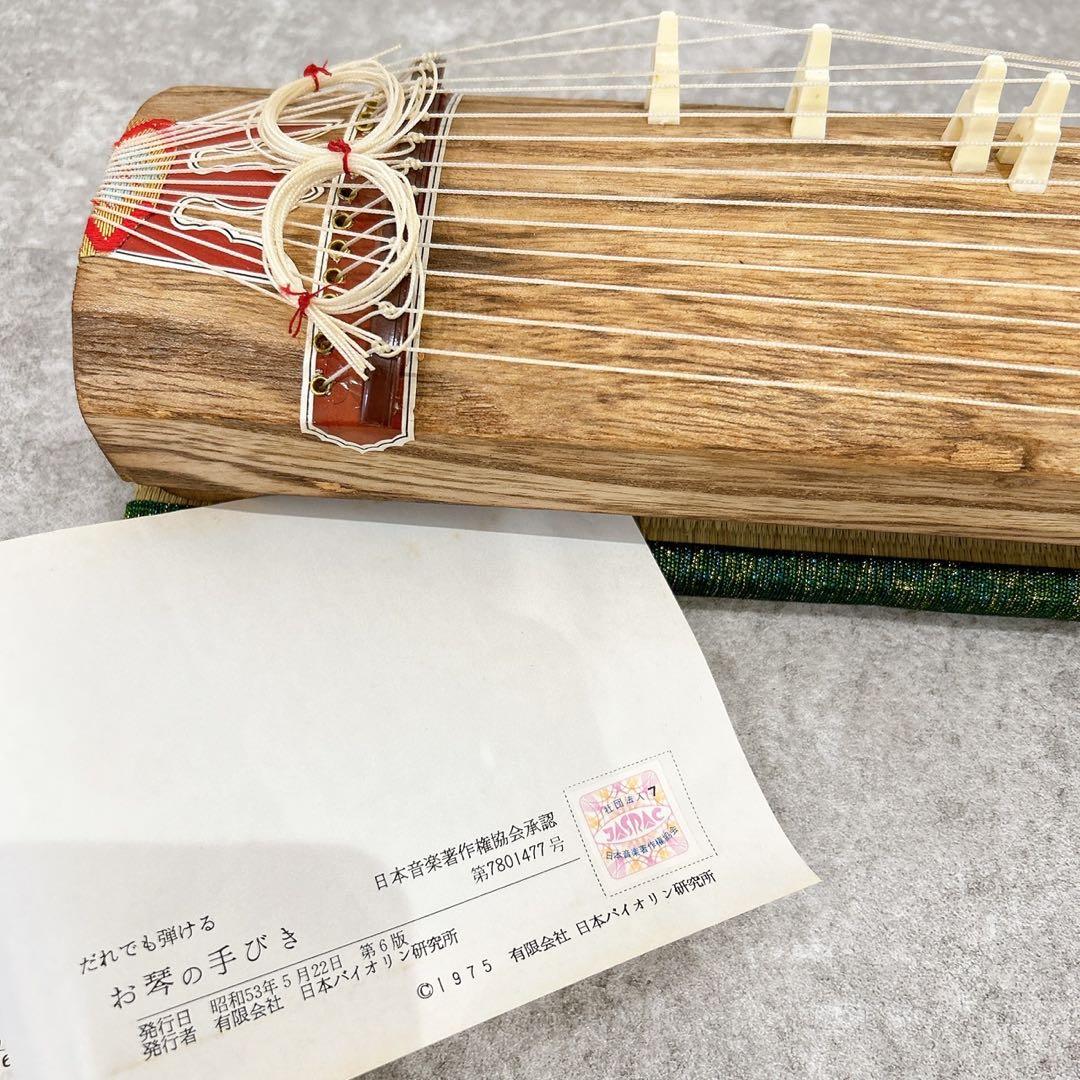 社団法人 7
JASRAC
日本音楽著作権協会
日本音楽著作権協会承認
第7801477号
だれでも弾ける
お琴の手びき
発行日 昭和53年5月22日 第6版
発行者 有限会社 日本バイオリン研究所
©1975 有限会社 日本バイオリン研究所